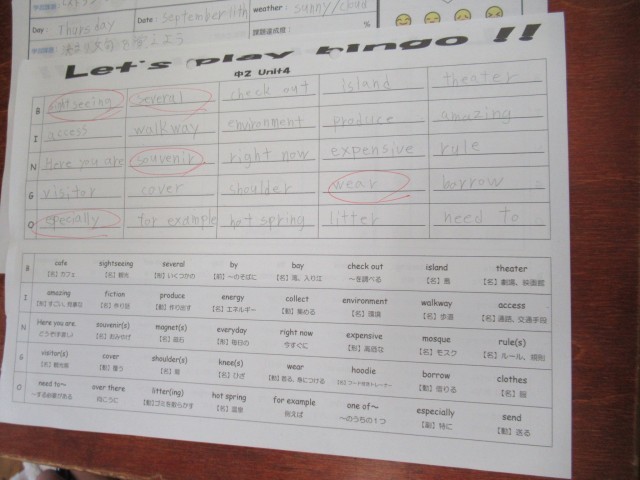 Day : Thursday
Date : september 11th
weather : sunny/cloud
課題達成度：
%
Let's play bingo !!
中2 Unit4
B sightseeing several check out island theater
I access walkway environment produce amazing
N Here you are souvenir right now expensive rule
G visitor cover shoulder wear borrow
O epecially for example hot spring litter need to
B cafe sightseeing several by bay check out island theater
【名】カフェ 【名】観光 【形】いくつかの 【前】～のそばに 【名】湾、入り江 ～を調べる 【名】島 【名】劇場、映画館
I amazing fiction produce energy collect environment walkway access
【形】すごい、見事な 【名】作り話 【動】作り出す 【名】エネルギー 【動】集める 【名】環境 【名】歩道 【名】通路、交通手段
N Here you are. souvenir(s) magnet(s) everyday right now expensive mosque rule(s)
どうぞ(手渡し) 【名】おみやげ 【名】磁石 【形】毎日の 今すぐに 【形】高価な 【名】モスク 【名】ルール、規則
G visitor(s) cover shoulder(s) knee(s) wear hoodie borrow clothes
【名】観光客 【動】覆う 【名】肩 【名】ひざ 【動】着る、身につける 【名】フード付きトレーナー 【動】借りる 【名】服
O need to～ over there litter(ing) hot spring for example one of～ especially send
～する必要がある 向こうに 【動】ゴミを散らかす 【名】温泉 例えば ～のうちの1つ 【副】特に 【動】送る